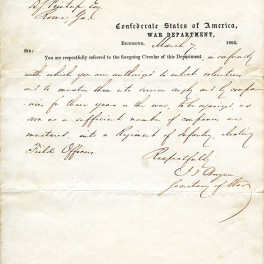 Esq.
Confederate States of America,
WAR DEPARTMENT,
Richmond, March 7 1862.
Sir:
You are respectfully referred to the foregoing Circular of this Department, as
with which you are authorized to enlist volunteers
and to muster them into service singly and by compa-
nies for three years or the war, to be organized as
soon as a sufficient number of companies are
mustered, into a Regiment of Infantry, electing
Field Officers
Respectfully
Secretary of War